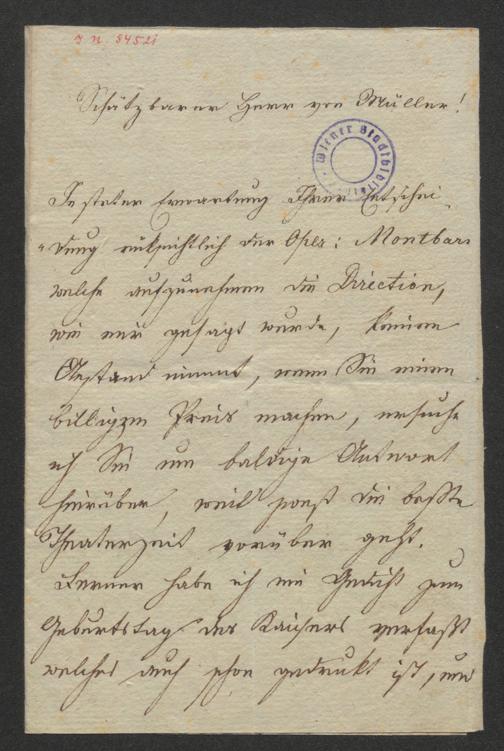 I. N. 34521
Schätzbarer Herr von Müller!
Wiener Stadtbibliothek
In steter Erwartung Ihrer Entschei-
dung rücksichtlich der Oper: Montbars
welche aufzunehmen die Direction,
wie mir gesagt wurde, keinen
Anstand nimmt, wenn Sie einen
billigen Preis machen, ersuche
ich Sie um baldige Antwort
hierüber, weil sonst die beßte
Theaterzeit vorüber geht.
Ferner habe ich ein Gedicht zum
Geburtstag des Kaisers verfaßt
welches auch schon gedruckt ist, und